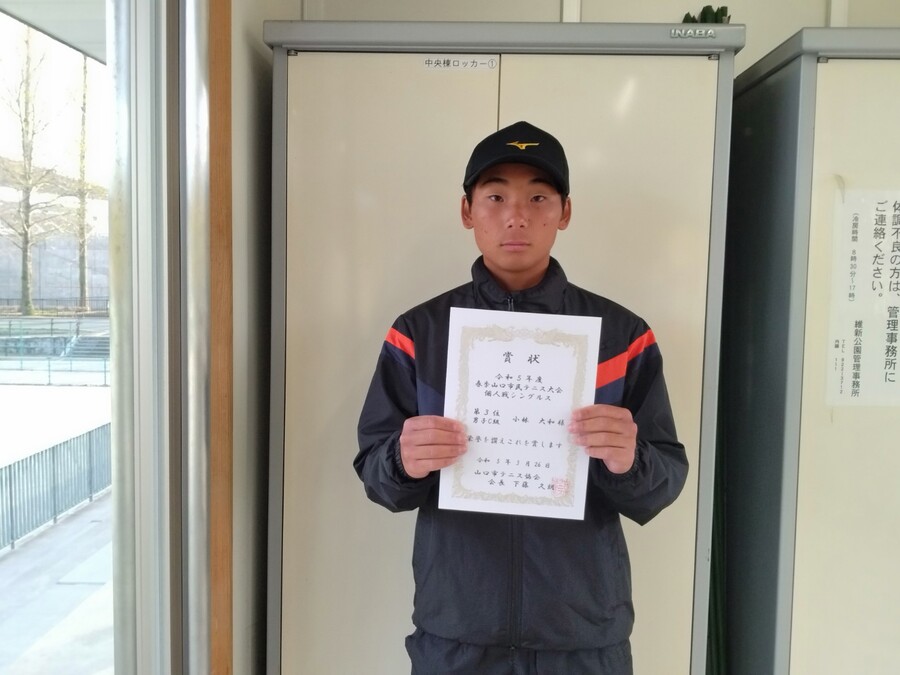 INABA
中央棟ロッカー①
賞状
令和5年度
春季山口市民テニス大会
個人戦シングルス
第3位
男子C級
小林 大和 様
栄誉を讃えこれを賞します
令和5年3月26日
山口市テニス協会
会長 下藤
体調不良の方は、管理事務所に
ご連絡ください。
8時30分~17時)
維新公園管理事務所